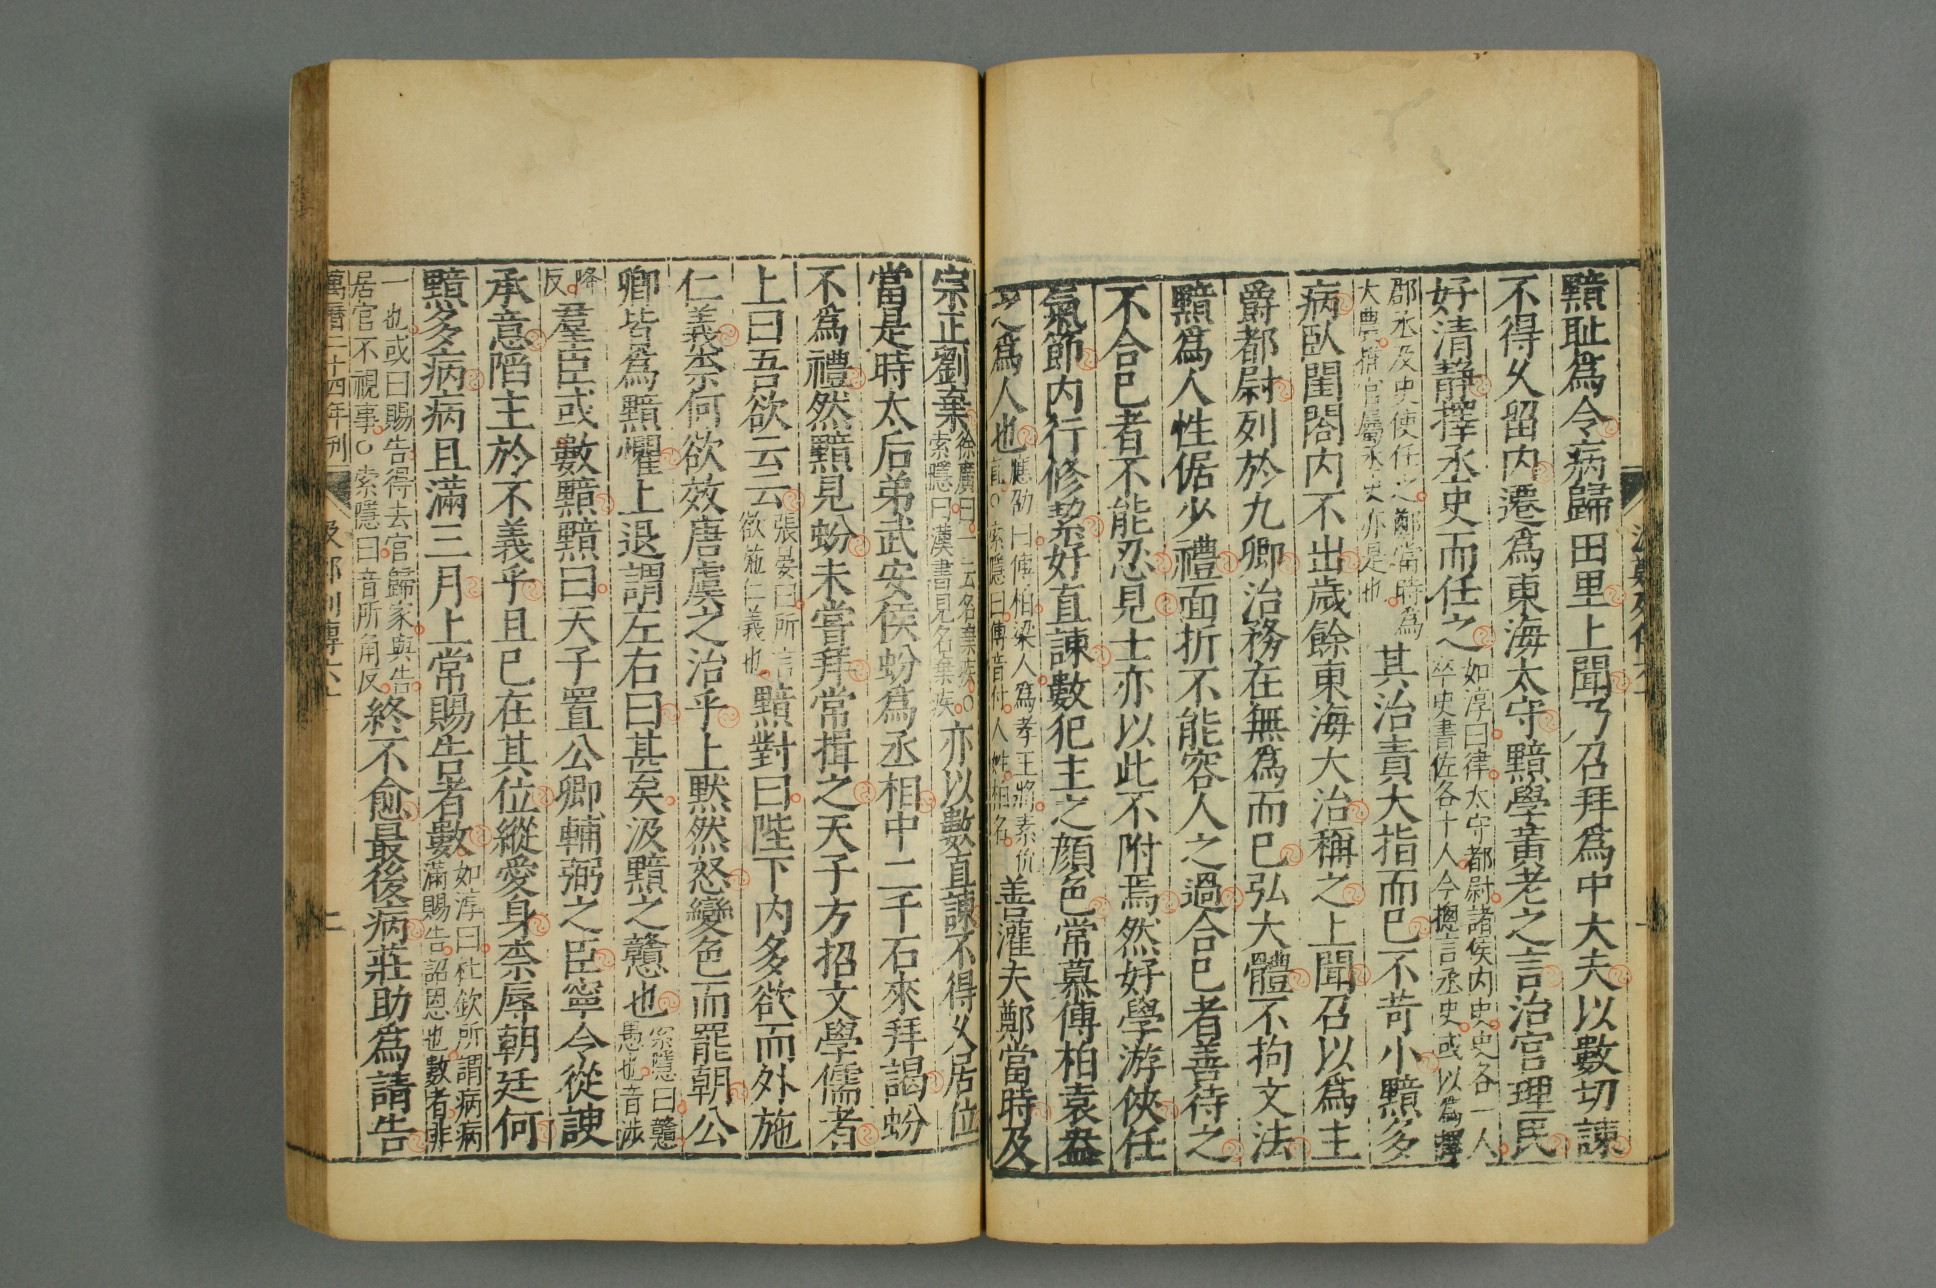 黯耻爲令病歸田里上聞乃召拜爲中大夫以數切諫
不得久留内遷爲東海太守黯學黄老之言治官理民
好清靜擇丞史而任之如淳曰律太守都尉諸侯内史史各一人卒史書佐各十人今總言丞史或以爲擇
郡丞及史使任之鄭當時爲大農推官屬丞史亦是也其治責大指而已不苛小黯多
病臥閨閤内不出歲餘東海大治稱之上聞召以爲主
爵都尉列於九卿治務在無爲而已弘大體不拘文法
黯爲人性倨少禮面折不能容人之過合已者善待之
不合已者不能忍見士亦以此不附焉然好學游俠任
氣節内行修絜好直諫數犯主之顔色常慕傅柏袁盎
之爲人也應劭曰傅柏梁人爲孝王將素伉直○索隱曰傅音付人姓柏名善灌夫鄭當時及
宗正劉棄徐廣曰一云名棄疾○索隱曰漢書見名棄疾亦以數直諫不得久居位
當是時太后弟武安侯蚡爲丞相中二千石來拜謁蚡
不爲禮然黯見蚡未嘗拜常揖之天子方招文學儒者
上曰吾欲云云張晏曰所言欲施仁義也黯對曰陛下内多欲而外施
仁義柰何欲效唐虞之治乎上默然怒變色而罷朝公
卿皆爲黯懼上退謂左右曰甚矣汲黯之戇也索隱曰戇愚也音涉
降反羣臣或數黯黯曰天子置公卿輔弼之臣寧令從諛
承意陷主於不義乎且已在其位縱愛身柰辱朝廷何
黯多病病且滿三月上常賜告者數如淳曰杜欽所謂病病滿賜告詔恩也數者非
一也或曰賜告得去官歸家與告居官不視事○索隱曰音所角反終不愈最後病莊助爲請告
萬曆二十四年刊 汲鄭列傳六十 二